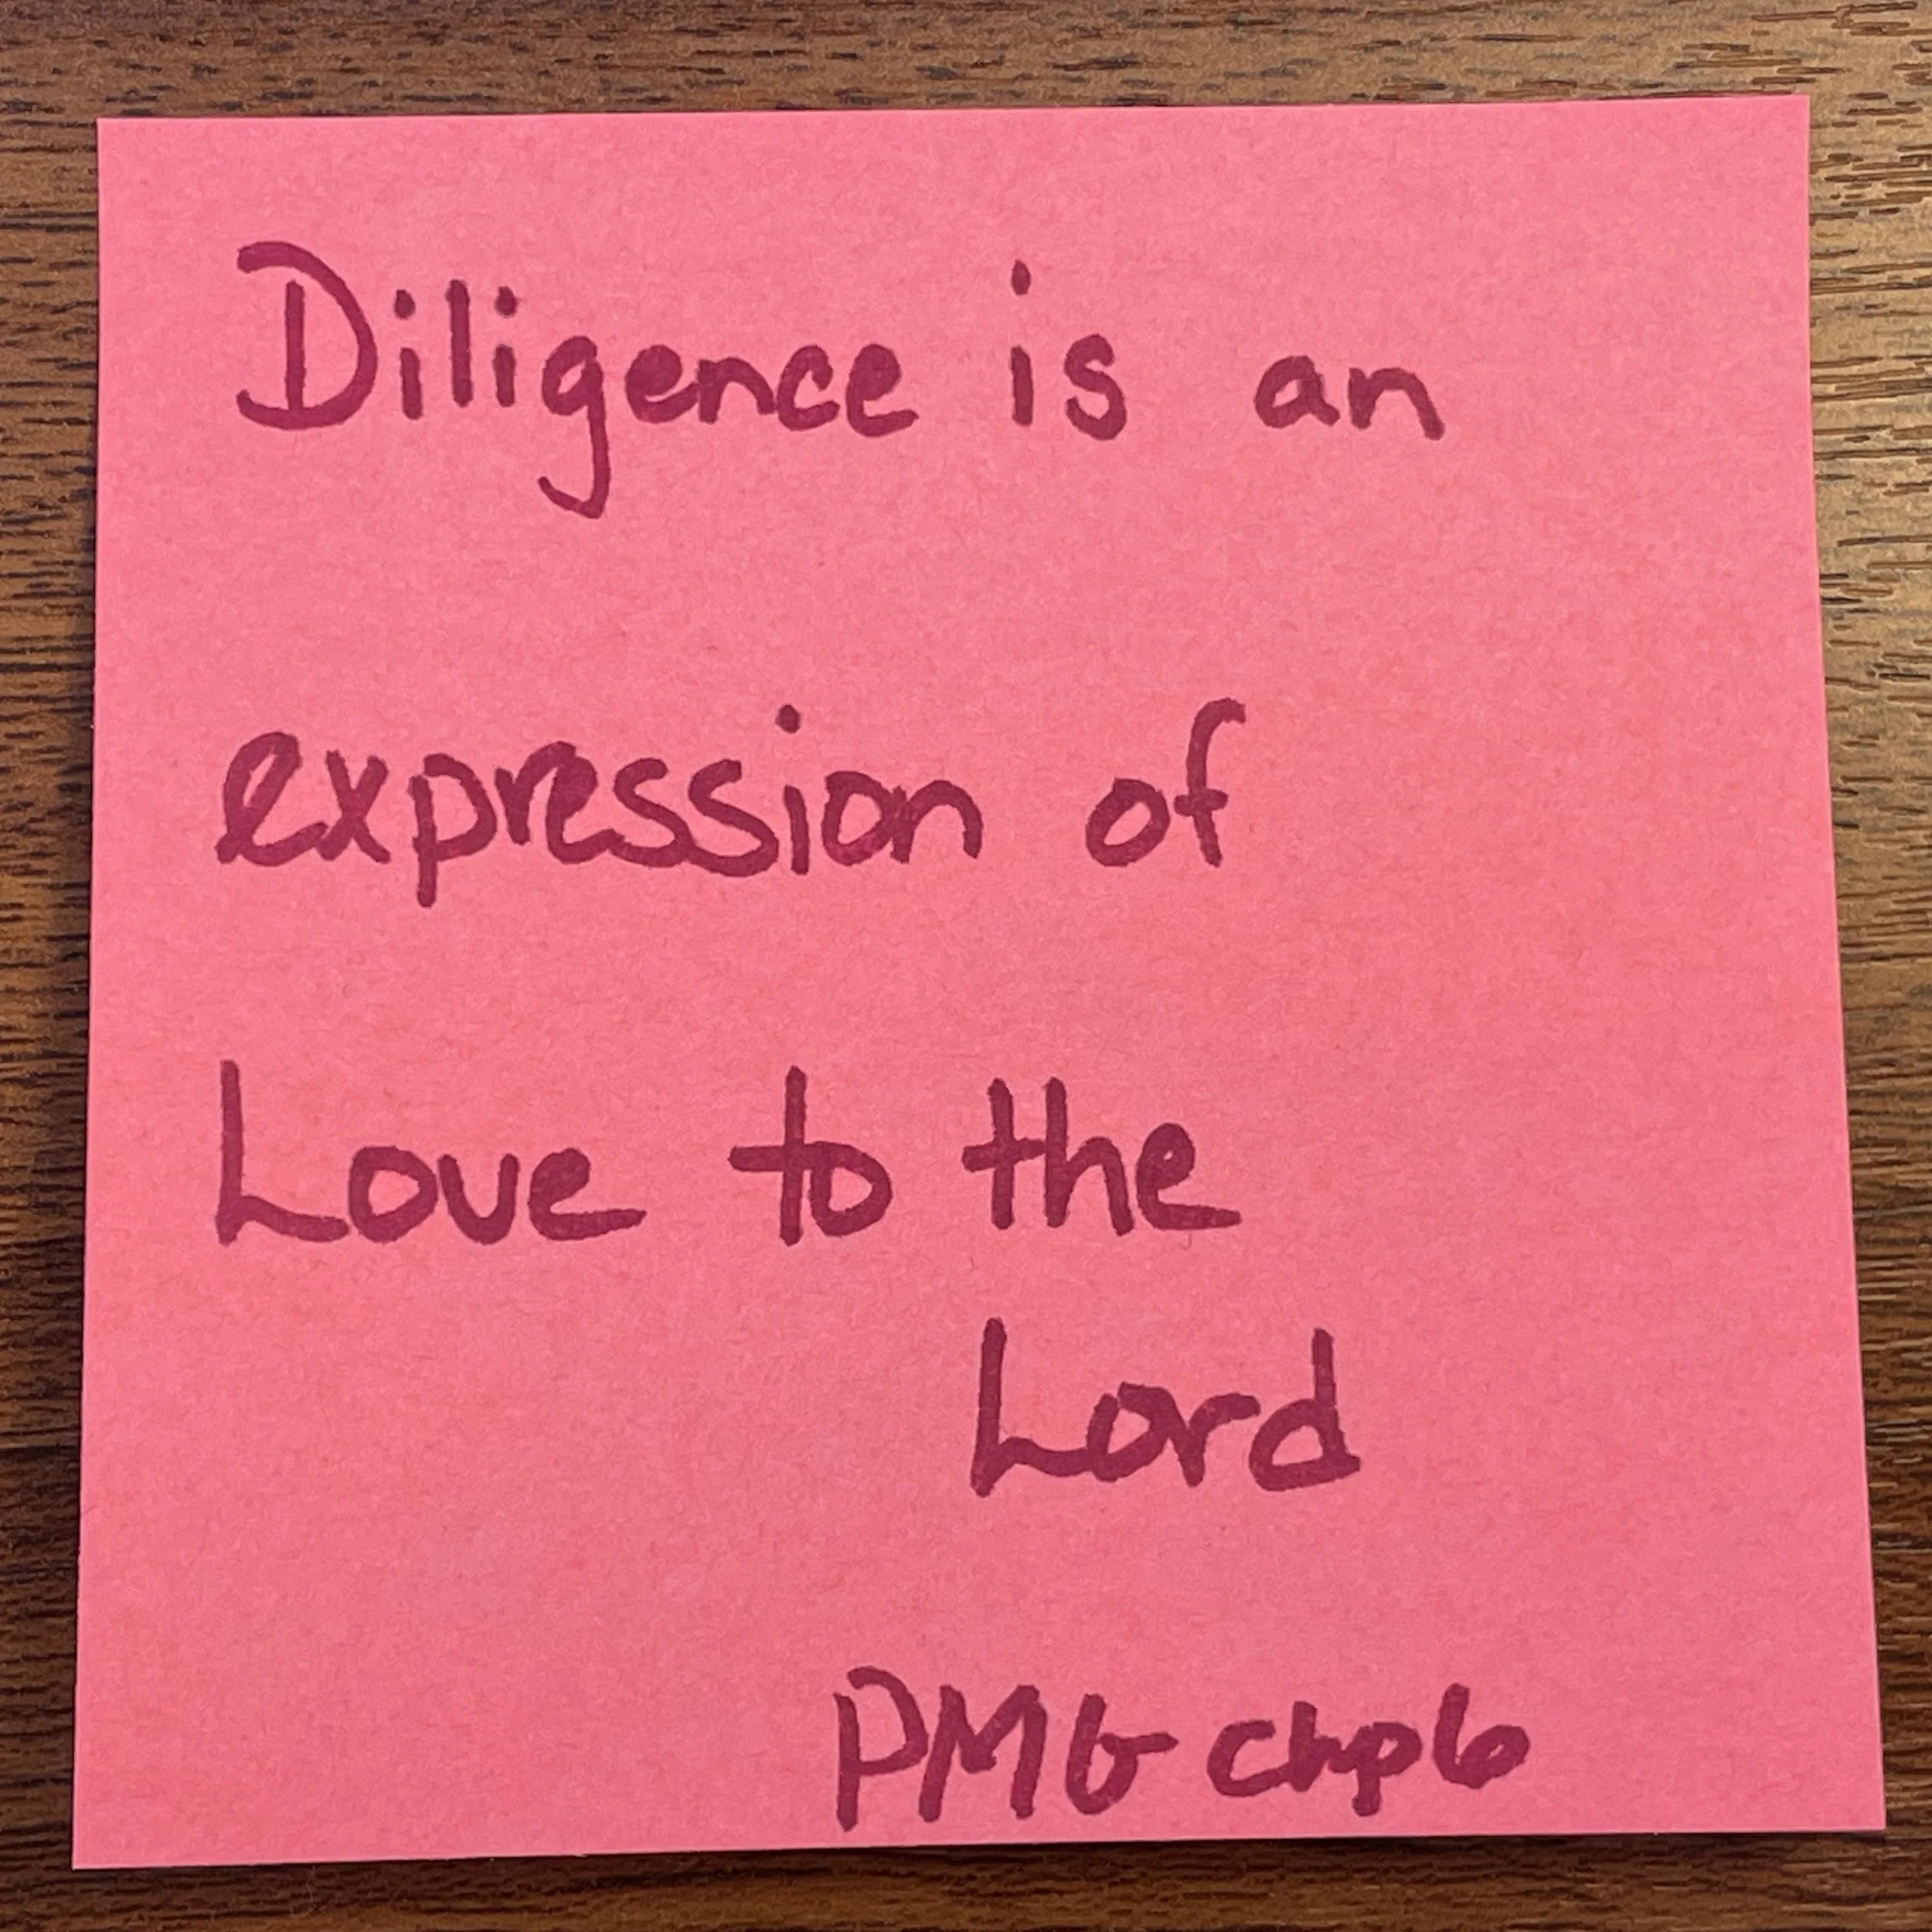 Diligence is an
expression of
Love to the
Lord
PMG chp6